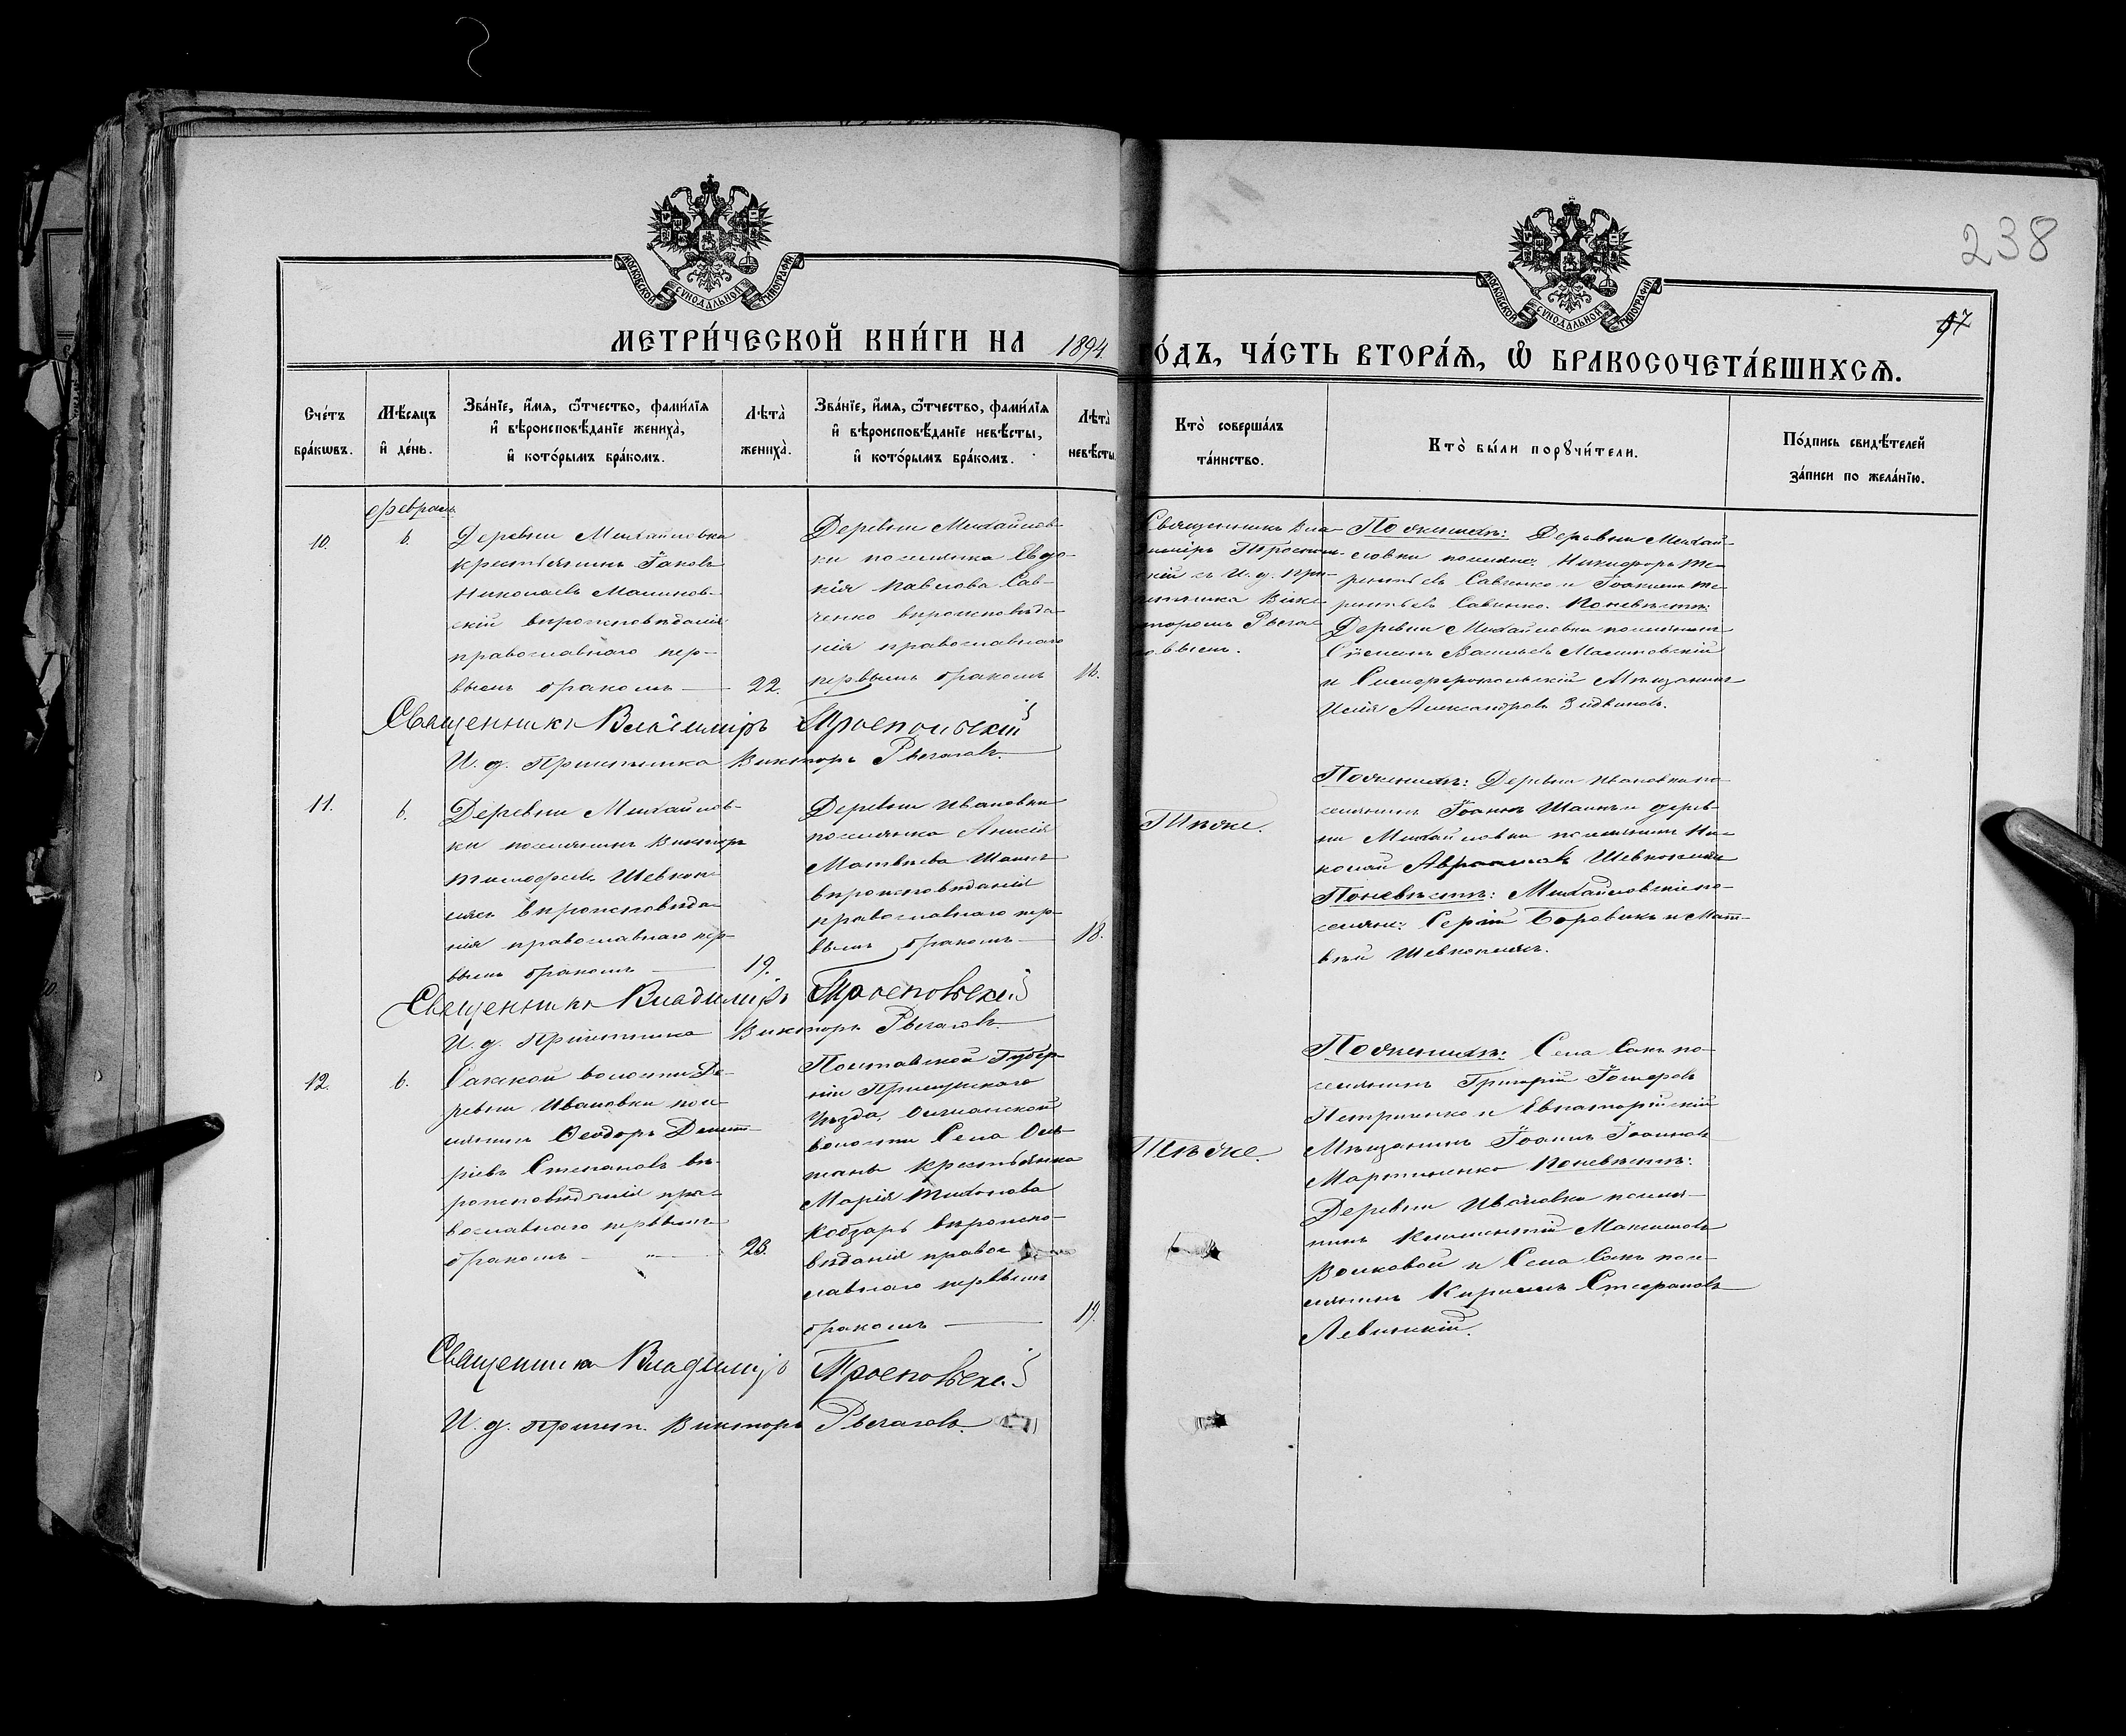 238
97
МОСКОВСКОЙ СѴНОДАЛЬНОЙ ТИПОГРАФІИ
МОСКОВСКОЙ СѴНОДАЛЬНОЙ ТИПОГРАФІИ
МЕТРИ́ЧЕСКОЙ КНИ́ГИ НА 1894
О́ДЪ, ЧА́СТЬ ВТОРА́Ѧ, Ѽ БРАКОСОЧЕТА́ВШИХСѦ.
Сче́тъ бра́кѡвъ.
Мѣ́сяцъ и҆ де́нь.
Зва́нїе, и҆́мѧ, ѻ҆́тчество, фами́лїѧ
и҆ вѣроисповѣ́данїе жениха̀,
и҆ кото́рымъ бра́комъ.
Лѣта̀ жениха̀.
Зва́нїе, и҆́мѧ, ѻ҆́тчество, фами́лїѧ
и҆ вѣроисповѣ́данїе невѣ́сты,
и҆ кото́рымъ бра́комъ.
Лѣта̀ невѣ́сты
Кто̀ соверша́лъ
та́инство.
Кто̀ бы́ли порꙋчи́тели.
По́дпись свидѣ́телей
за́писи по жела́нїю.
Февраль
10.
6.
Деревни Михайловка
крестьянинъ Іаковъ
Николаевъ Малинов-
скій вѣроисповѣданія
православнаго пер-
вымъ бракомъ
22.
Деревни Михайлов-
ки поселянка Евдо-
кія Павлова Сав-
ченко вѣроисповѣда-
нія православнаго
первымъ бракомъ
16.
Священникъ Вла-
димиръ
скій съ И. д. при-
четника Вик-
торомъ Рыча-
овымъ.
По женихѣ: Деревни Михай-
ловки поселяне: Никифоръ Те-
рентьевъ Савченко и Іоакимъ Те-
рентьевъ Савченко. По невѣстѣ:
Деревни Михайловки поселянинъ
Стефанъ Васильевъ Малиновскій
и Симферопольскій Мѣщанинъ
Илія Александровъ
Священникъ Владимиръ
И. д. Причетника Викторъ Рычаговъ.
11.
6.
Деревни Михайлов-
ки поселянинъ Викторъ
Тимофеевъ Шевкоп-
лясъ вѣроисповѣда-
нія православнаго пер-
вымъ бракомъ
19.
Деревни Ивановки
поселянка Анисія
Матвѣева Шаинъ
вѣроисповѣданія
православнаго пер-
вымъ бракомъ
18.
Тѣже.
По женихѣ: Деревни Ивановки по-
селянинъ Іоаннъ Шаинъ и дерев-
ни Михайловки поселянинъ Ни-
колай Авраамовъ Шевкоплясъ
По невѣстѣ: Михайловскіе по-
селяне: Сергій Боровикъ и Мат-
вѣй Шевкоплясъ.
Священникъ Владимиръ
И. д. Причетника Викторъ Рычаговъ.
12.
6.
Сакской волости Де-
ревни Ивановки посе-
лянинъ Ѳеодоръ Димит-
ріевъ Степановъ вѣ-
роисповѣданія пра-
вославнаго первымъ
бракомъ
23.
Полтавской Губер-
ніи Прилукскаго
Уѣзда,
волости Села
крестьянка
Марія Тихонова
Кобзарь вѣроиспо-
вѣданія правос-
лавнаго первымъ
бракомъ
19.
Тѣже.
По женихѣ: Села Сакъ по-
селянинъ Григорій
Петриченко и Евпаторійскій
Мѣщанинъ Іоаннъ Іоанновъ
Мартыненко По невѣстѣ:
Деревни Ивановки поселя-
нинъ Климентій Максимовъ
Волковой и Села Сакъ посе-
лянинъ Кириллъ Стефановъ
Левицкій.
Священникъ Владимиръ
И. д. причет. Викторъ Рычаговъ.